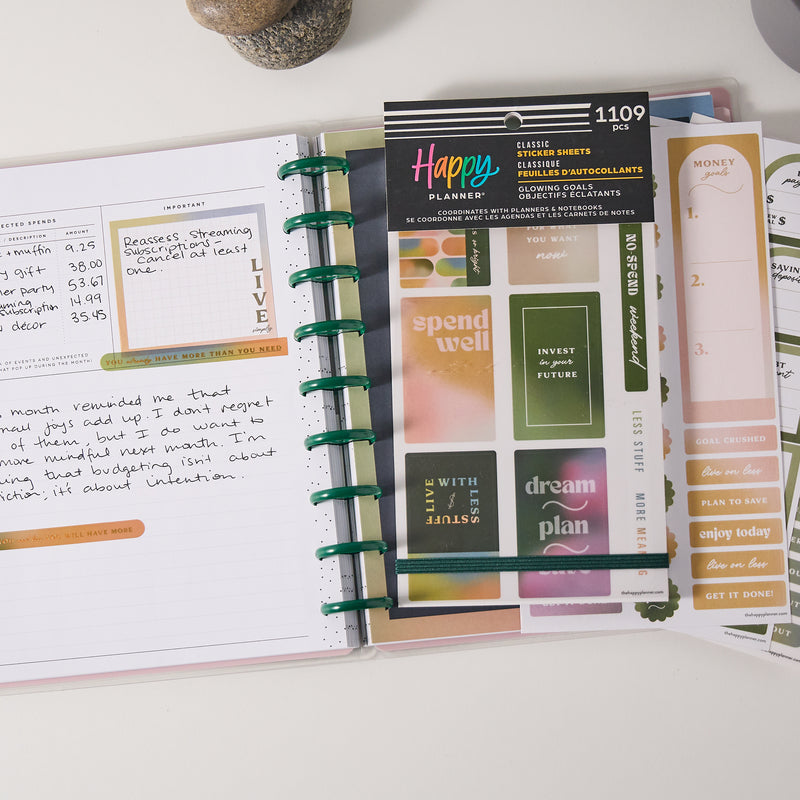 ECTED SPENDS
/ DESCRIPTION
AMOUNT
+ muffin 9.25
y gift 38.00
er party 53.67
subscription 14.99
décor 35.45
OF EVENTS AND UNEXPECTED
THAT POP UP DURING THE MONTH!
IMPORTANT
Reassess streaming
subscriptions -
Cancel at least
one.
LIVE
simply
YOU already HAVE MORE THAN YOU NEED
month reminded me that
joys add up. I don't regret
of them, but I do want to
more mindful next month. I'm
ing that budgeting isn't about
iction; it's about intention.
WILL HAVE MORE
1109
pcs
Happy
PLANNER®
CLASSIC
STICKER SHEETS
CLASSIQUE
FEUILLES D'AUTOCOLLANTS
GLOWING GOALS
OBJECTIFS ÉCLATANTS
COORDINATES WITH PLANNERS & NOTEBOOKS
SE COORDONNE AVEC LES AGENDAS ET LES CARNETS DE NOTES
FOR WHAT
YOU WANT
now
NO SPEND weekend
spend
well
INVEST
in your
FUTURE
LIVE WITH
LESS
STUFF
$
dream
plan
save
LESS STUFF MORE MEANING
thehappyplanner.com
MONEY
goals
1.
2.
3.
GOAL CRUSHED
live on less
PLAN TO SAVE
enjoy today
live on less
GET IT DONE!
thehappyplanner.com
SAVIN